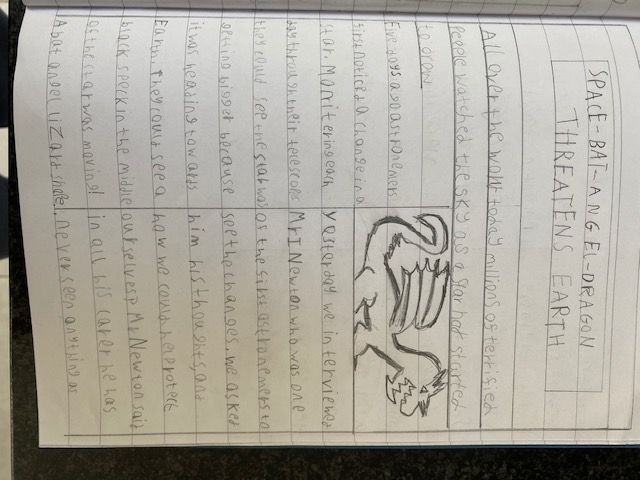 SPACE-BAT-ANGEL-DRAGON
THREATENS EARTH
All over the world today millions of terrified
people watched the sky as a star hat started
to grow.
Five days ago astronemers
first noticed a change in a
star. Monitering each
day through their telescops
they could see the star was
getting bigger because
it was heading towards
Earth. They could see a
black speck in the middle
of the star was moving!
A bat angel lizard shape,
Yesterday we interviewed
Mr I Newton who was one
of the first astronemers to
see the changes. we asked
him his thoughts, and
how we could
ourselves? Mr Newton said
in all his carer he has
never seen anything as